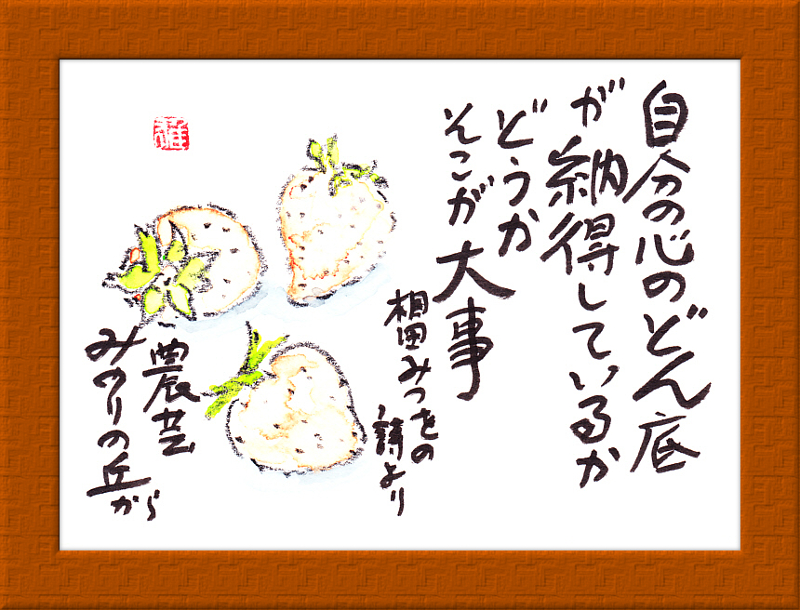 自分の心のどん底
が納得しているか
どうか
そこが大事
相田みつをの
詩より
農芸
みのりの丘から
雅